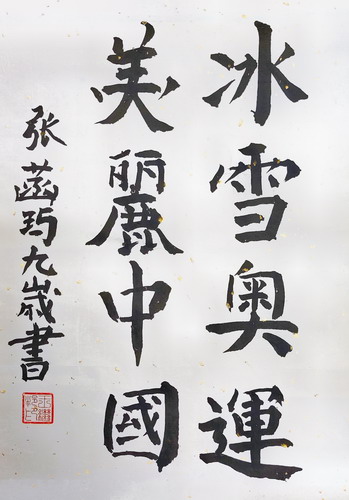 冰雪奥運
美麗中國
张菡玙九歲書